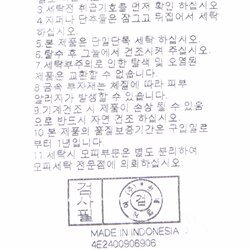 3.세탁전 취급기호를 먼저 확인 하십시오
4.지퍼나 단추들은 잠그고 뒤집어서 세탁
하십시오
5.본 제품은 단일단독 세탁 하십시오
6.탈수 후 그늘에서 건조시켜 주십시오
7.세탁부주의로 인한 탈색 및 오염된
제품은 교환할 수 없습니다
8.금속 부자재는 체질에 따라 피부
알러지가 발생할 수 있습니다.
9.기계건조 시 제품이 손상 될 수 있음
으로 반드시 자연 건조 하십시오.
10.본 제품의 품질보증기간은 구입일로
부터 1년입니다
11.세탁시 모피부분은 별도 분리하여
모피세탁 전문점에 의뢰하십시오.
검사필
검
MADE IN INDONESIA
4E2400906906